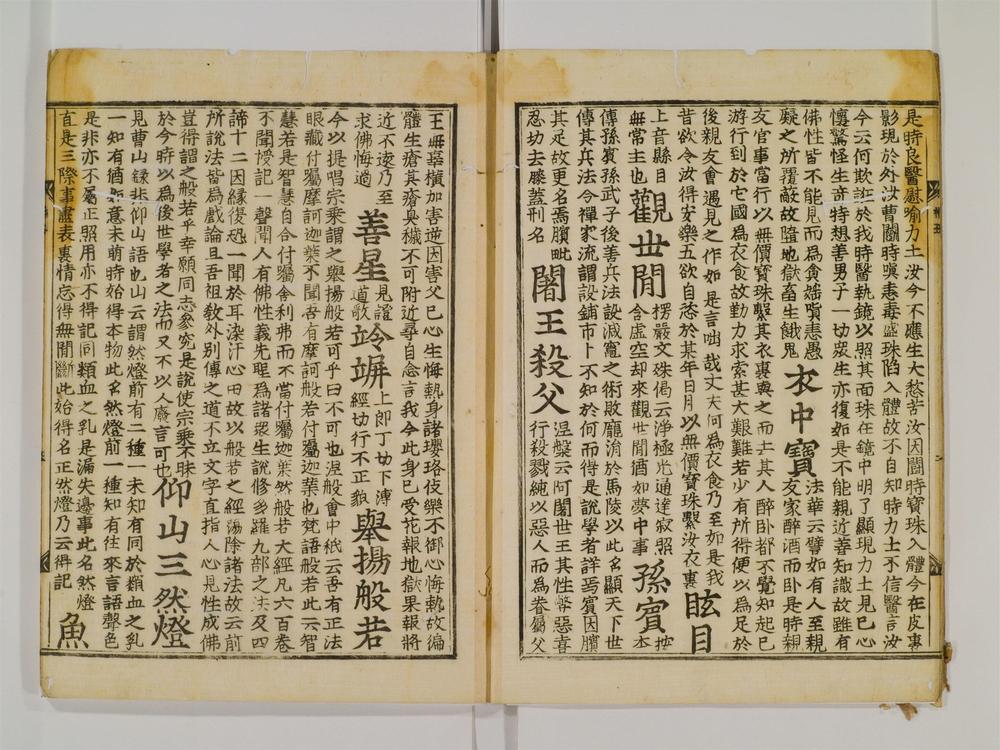 是時良醫慰喻力士汝今不應生大愁苦汝因鬪時寶珠入體今在皮裏
影現於外汝曹鬪時瞋恚毒盛珠陷入體故不自知時力士不信醫言汝
今云何欺誑於我時醫執鏡以照其面珠在鏡中明了顯現力士見已心
懷驚怪生竒特想善男子一切眾生亦復如是不能親近善知識故雖有
佛性皆不能見而為貪婬嗔恚愚
癡之所覆蔽故墮地獄畜生餓鬼
衣中寶
法華云譬如有人至親
友家醉酒而卧是時親
友官事當行以無價寶珠繫其衣裏與之而去其人醉卧都不覺知起已
游行到於它國為衣食故勤力求索甚大艱難若少有所得便以為足於
後親友會遇見之作如是言咄哉丈夫何為衣食乃至如是我
昔欲令汝得安樂五欲自恣於某年日月以無價寶珠繫汝衣裏
眩目
上音縣目
無常主也
觀世間
楞嚴文殊偈云淨極光通達寂照
含虛空却來觀世間猶如夢中事
孫賓
按
本
傳孫賓孫武子後善兵法設減竈之術敗龐涓於馬陵以此名顯天下世
傳其兵法今禪家流謂設鋪市卜不知於何而得是說學者詳焉賓因臏
其足故更名焉臏毗
忍切去膝蓋刑名
闍王殺父
涅槃云阿闍世王其性弊惡喜
行殺戮純以惡人而為眷屬父
王無辜橫加害逆因害父已心生悔熱身諸瓔珞伎樂不御心悔熱故徧
體生瘡其瘡臭穢不可附近尋自念言我今此身已受花報地獄果報將
近不遠乃至
求佛悔過
善星
見證
道歌
竛竮
上郎丁切下滂
經切行不正皃
舉揚般若
今以提唱宗乘謂之舉揚般若可乎曰不可也涅槃會中秪云吾有正法
眼藏付囑摩訶迦葉不聞吾有摩訶般若付囑迦葉也梵語般若此云智
慧若是智慧自合付囑舍利弗而不當付囑迦葉然般若大經凡六百卷
不聞授記一聲聞人有佛性義先聖為諸眾生說修多羅九部之法及四
諦十二因緣復恐一聞於耳染汙心田故以般若之經蕩除諸法故云前
所說法皆為戲論且吾祖教外別傳之道不立文字直指人心見性成佛
豈得謂之般若乎幸願同志叅究是說使宗乘不昧
於今時以為後世學者之法而又不入癡言可也
仰山三然燈
見曹山錄非仰山語也山云謂然燈前有二種一未知有同於類血之乳
一知有猶如意未萌時始得本物此名然燈前一種知有往來言語聲色
是非亦不屬正照用亦不得記同類血之乳是漏失邊事此名然燈
直是三際事盡表裏情忘得無間斷此始得名正然燈乃云得記
魚